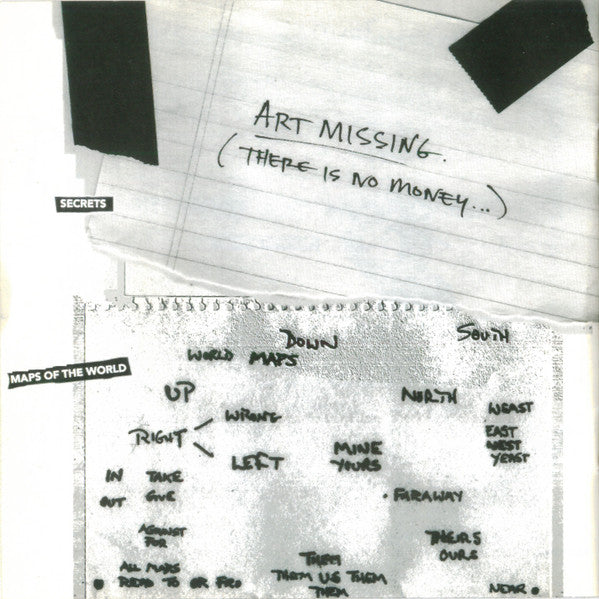 ART MISSING.
(THERE IS NO MONEY...)
SECRETS
DOWN
SOUTH
WORLD MAPS
MAPS OF THE WORLD
UP
NORTH
WRONG
WEAST
RIGHT
EAST
WEST
YEAST
LEFT
MINE
YOURS
IN TAKE
OUT GIVE
FARAWAY
AGAINST
FOR
THEIRS
OURS
ALL MAPS
READ TO OR FRO
THEM
THEM US THEM
THEM
NEAR